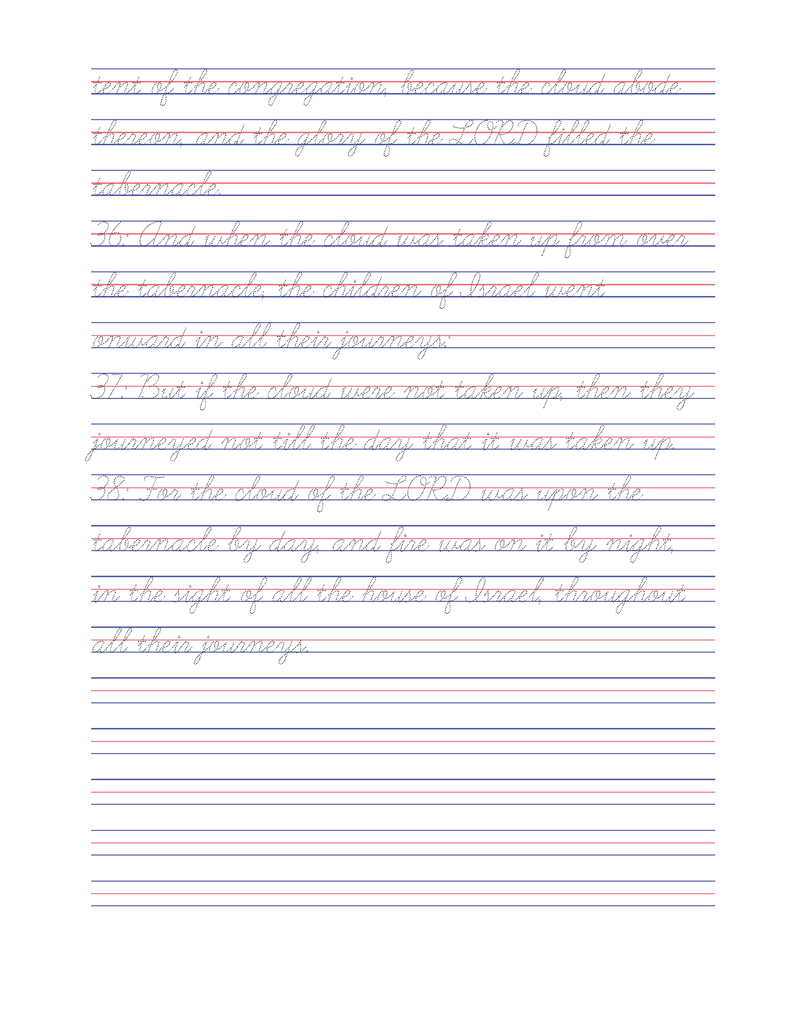 tent of the congregation, because the cloud abode
thereon, and the glory of the LORD filled the
tabernacle.
36: And when the cloud was taken up from over
the tabernacle, the children of Israel went
onward in all their journeys:
37: But if the cloud were not taken up, then they
journeyed not till the day that it was taken up.
38: For the cloud of the LORD was upon the
tabernacle by day, and fire was on it by night,
in the sight of all the house of Israel, throughout
all their journeys.